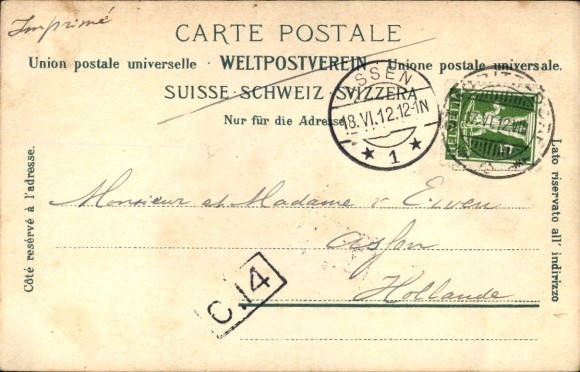 Imprimé
CARTE POSTALE
Union postale universelle · WELTPOSTVEREIN · Unione postale universale.
SUISSE · SCHWEIZ · SVIZZERA
Nur für die Adresse
SSEN
18.VI.12.12-1N
1
HELVETIA
Côté resérvé à l'adresse.
Lato riservato all' indirizzo
Monsieur et Madame v Eiven
Assen
Hollande
C.14